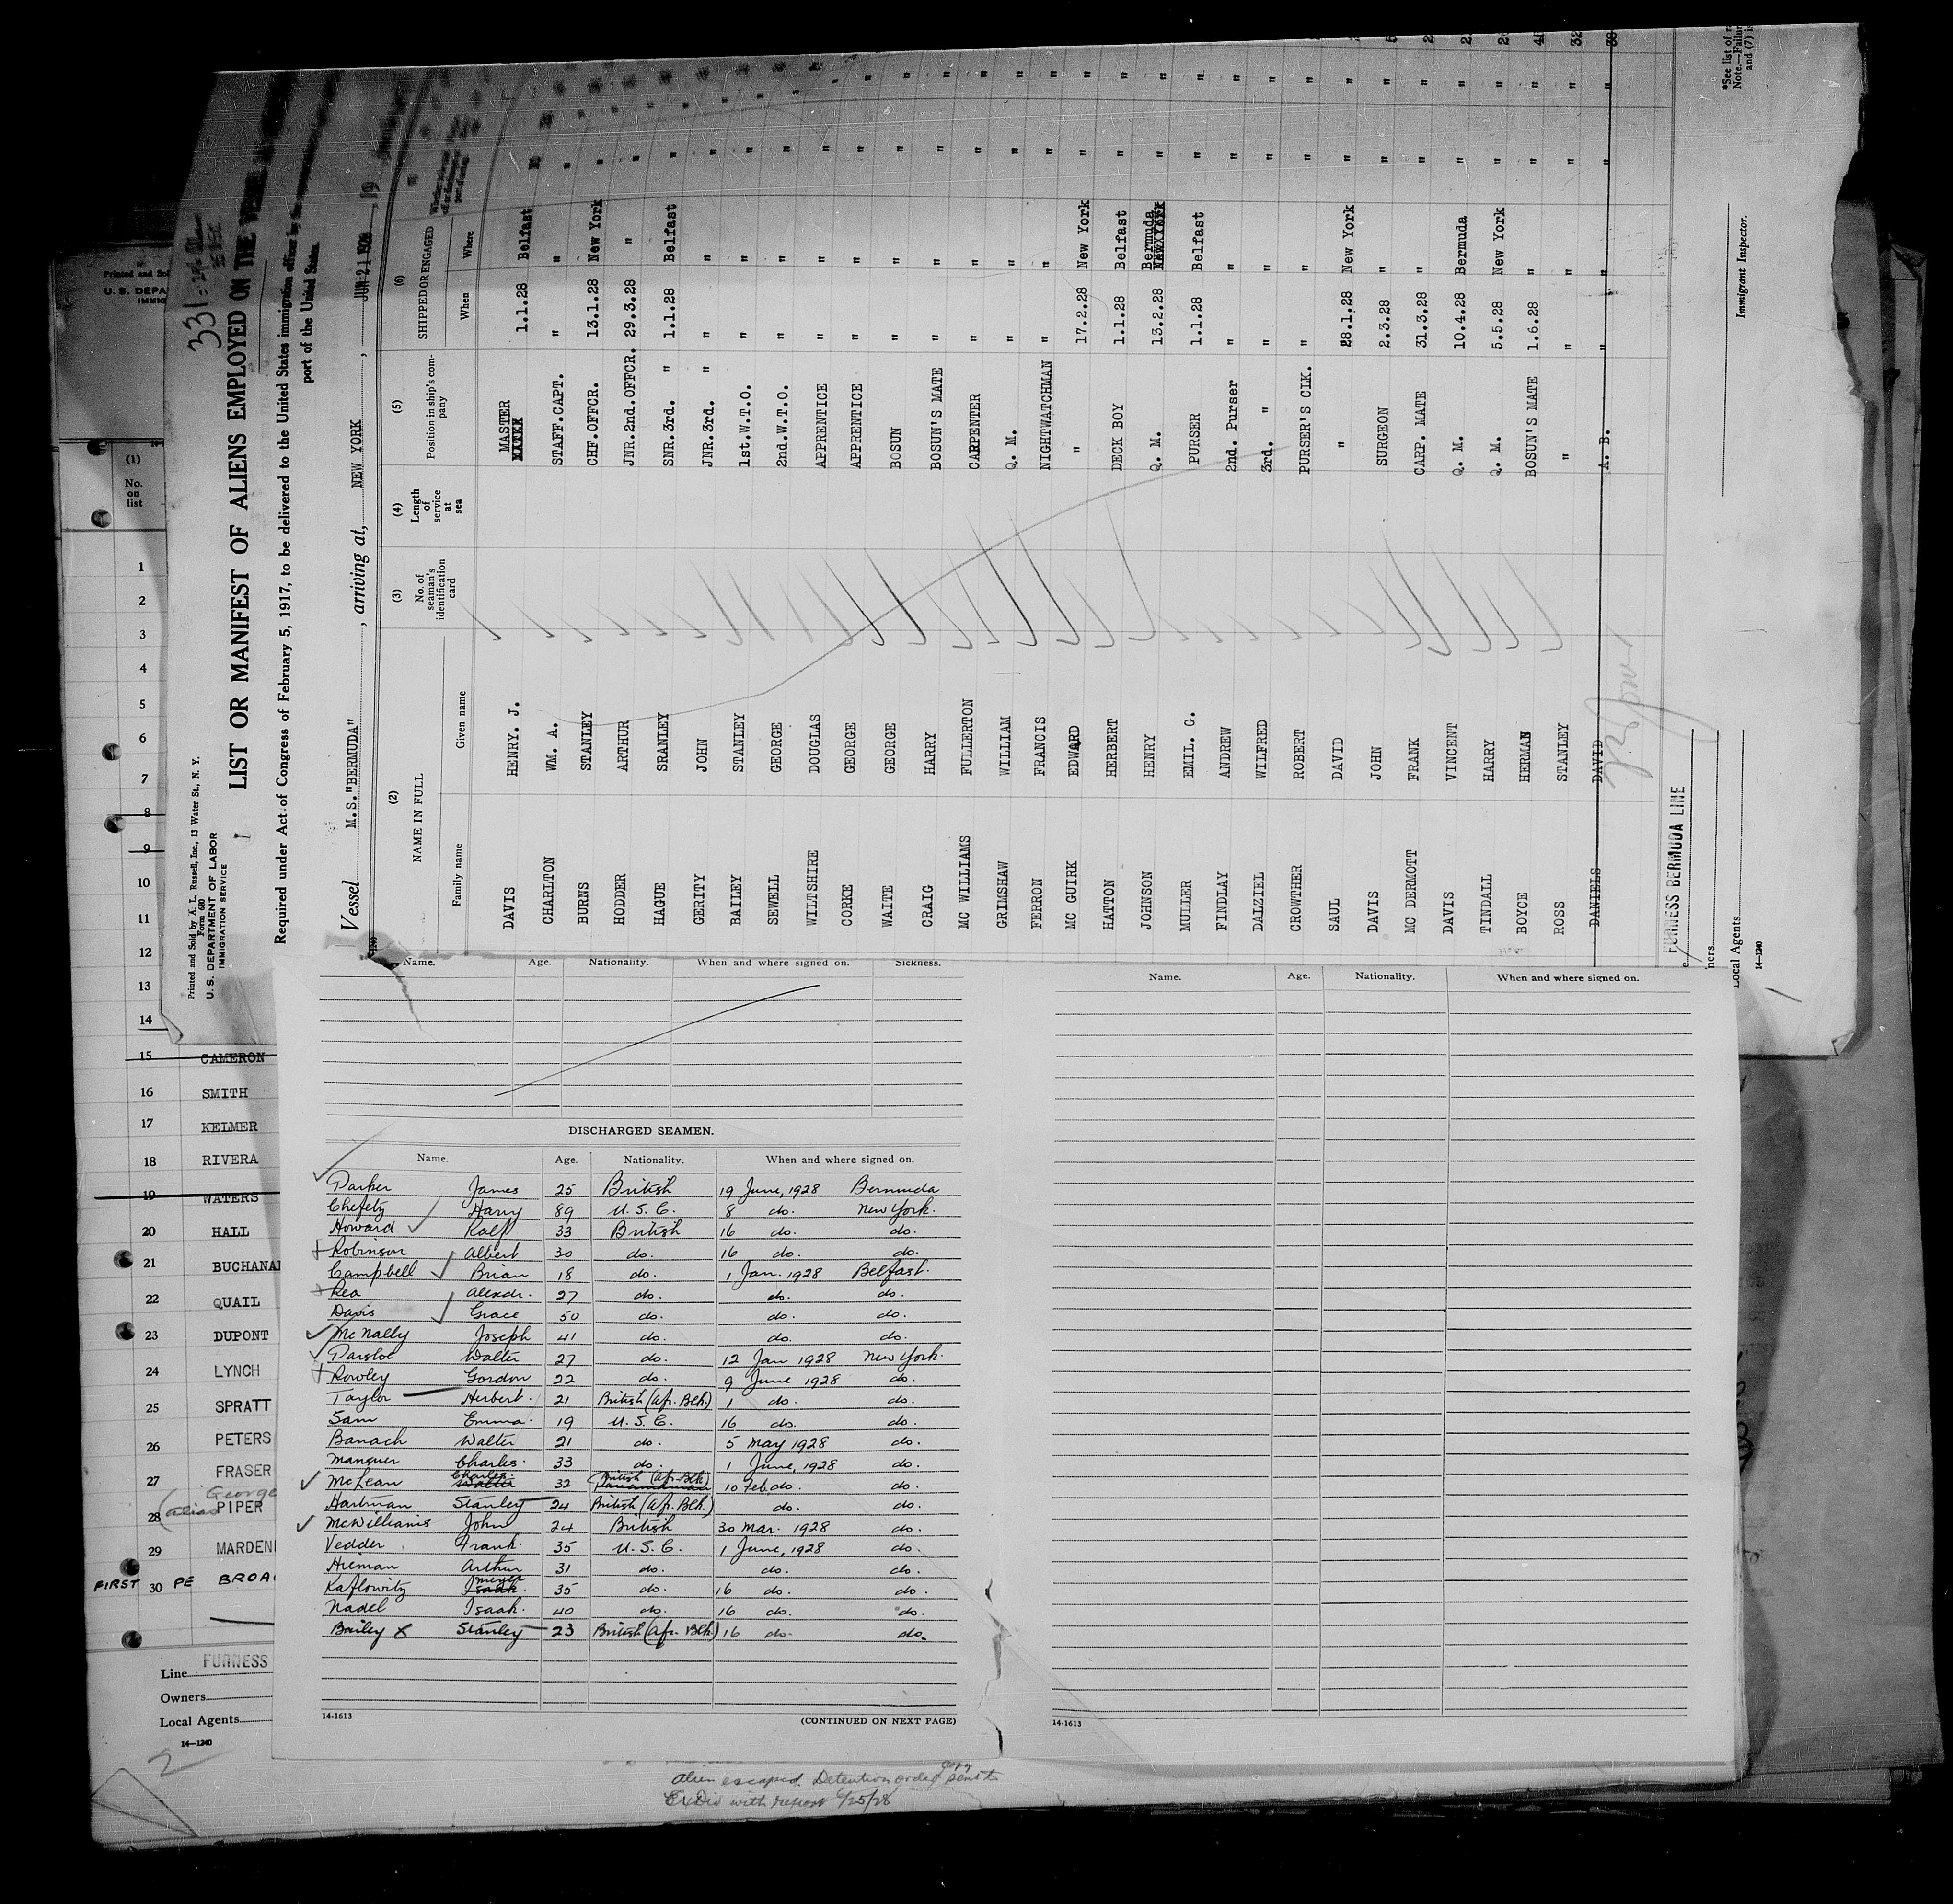 Printed and Sold by A. L. Russell, Inc., 13 Water St., N. Y.
Form 680
U. S. DEPARTMENT OF LABOR
IMMIGRATION SERVICE
331
LIST OR MANIFEST OF ALIENS EMPLOYED ON THE VESSEL
Required under Act of Congress of February 5, 1917, to be delivered to the United States immigration officer by the
port of the United States.
Vessel M.S."BERMUDA", arriving at, NEW YORK, JUN 21 1928, 19
(2) (3) (4) (5) (6)
NAME IN FULL No. of seaman's identification card Length of service at sea Position in ship's company SHIPPED OR ENGAGED
Family name Given name When Where
DAVIS HENRY. J. MASTER 1.1.28 Belfast
CHARLTON WM. A. STAFF.CAPT. " "
BURNS STANLEY CHF.OFFCR. 13.1.28 New York
HODDER ARTHUR JNR.2nd.OFFCR. 29.3.28 "
HAGUE SRANLEY SNR.3rd. " 1.1.28 Belfast
GERITY JOHN JNR.3rd. " " "
BAILEY STANLEY 1st.W.T.O. " "
SEWELL GEORGE 2nd.W.T.O. " "
WILTSHIRE DOUGLAS APPRENTICE " "
CORKE GEORGE APPRENTICE " "
WAITE GEORGE BOSUN " "
CRAIG HARRY BOSUN'S MATE " "
MC WILLIAMS FULLERTON CARPENTER " "
GRIMSHAW WILLIAM Q. M. " "
FERRON FRANCIS NIGHTWATCHMAN " "
MC GUIRK EDWARD " 17.2.28 New York
HATTON HERBERT DECK BOY 1.1.28 Belfast
JOHNSON HENRY Q. M. 13.2.28 Bermuda New York
MULLER EMIL. G. PURSER 1.1.28 Belfast
FINDLAY ANDREW 2nd. Purser " "
DALZIEL WILFRED 3rd. " " "
CROWTHER ROBERT PURSER'S CLK. " "
SAUL DAVID " 28.1.28 New York
DAVIS JOHN SURGEON 2.3.28 "
MC DERMOTT FRANK CARP. MATE 31.3.28 "
DAVIS VINCENT Q. M. 10.4.28 Bermuda
TINDALL HARRY Q. M. 5.5.28 New York
BOYCE HERMAN BOSUN'S MATE 1.6.28 "
ROSS STANLEY " " "
DANIELS DAVID A. B. " "
FURNESS BERMUDA LINE
Local Agents
14—1240
Immigrant Inspector.
*See list of
Note.—Failure
and (7) is
Printed and Sol
U. S. DEPA
IMMIG
(1)
No. on list
1
2
3
4
5
6
7
8
9
10
11
12
13
14
15 CAMERON
16 SMITH
17 KELMER
18 RIVERA
19 WATERS
20 HALL
21 BUCHANA
22 QUAIL
23 DUPONT
24 LYNCH
25 SPRATT
26 PETERS
27 FRASER
George
28 (alias PIPER
29 MARDEN
FIRST 30 PE BROA
Line FURNESS
Owners
Local Agents
14—1240
2
Name. Age. Nationality. When and where signed on. Sickness.
DISCHARGED SEAMEN.
Name. Age. Nationality. When and where signed on.
Parker James 25 British 19 June, 1928 Bermuda
Chefetz Harry 89 U. S. C. 8 do. New York.
Howard Ralf 33 British 16 do. do.
Robinson Albert 30 do. 16 do. do.
Campbell Brian 18 do. 1 Jan. 1928 Belfast.
Rea Alexdr. 27 do. do. do.
Davis Grace 50 do. do. do.
McNally Joseph 41 do. do. do.
Parsloe Walter 27 do. 12 Jan 1928 New York.
Rowley Gordon 22 do. 9 June 1928 do.
Taylor Herbert. 21 British (Af. Blk.) 1 do. do.
Sam Emma. 19 U. S. C. 16 do. do.
Banach Walter 21 do. 5 May 1928 do.
Manquer Charles. 33 do. 1 June, 1928 do.
McLean Charles. Walter 32 British (Af. Blk) Panamanian 10 Feb. do. do.
Hartman Stanley 24 British (Af. Blk.) do. do.
McWilliams John 24 British 30 Mar. 1928 do.
Vedder Frank. 35 U. S. C. 1 June, 1928 do.
Hieman Arthur 31 do. do. do.
Kaflowitz Meyer Isaak. 35 do. 16 do. do.
Nadel Isaak. 40 do. 16 do. do.
Bailey x Stanley 23 British (Af. Blk.) 16 do. do.
14-1613 (CONTINUED ON NEXT PAGE)
Name. Age. Nationality. When and where signed on.
14-1613
Alien escaped. Detention order copy sent to
Ex Div with report 6/25/28